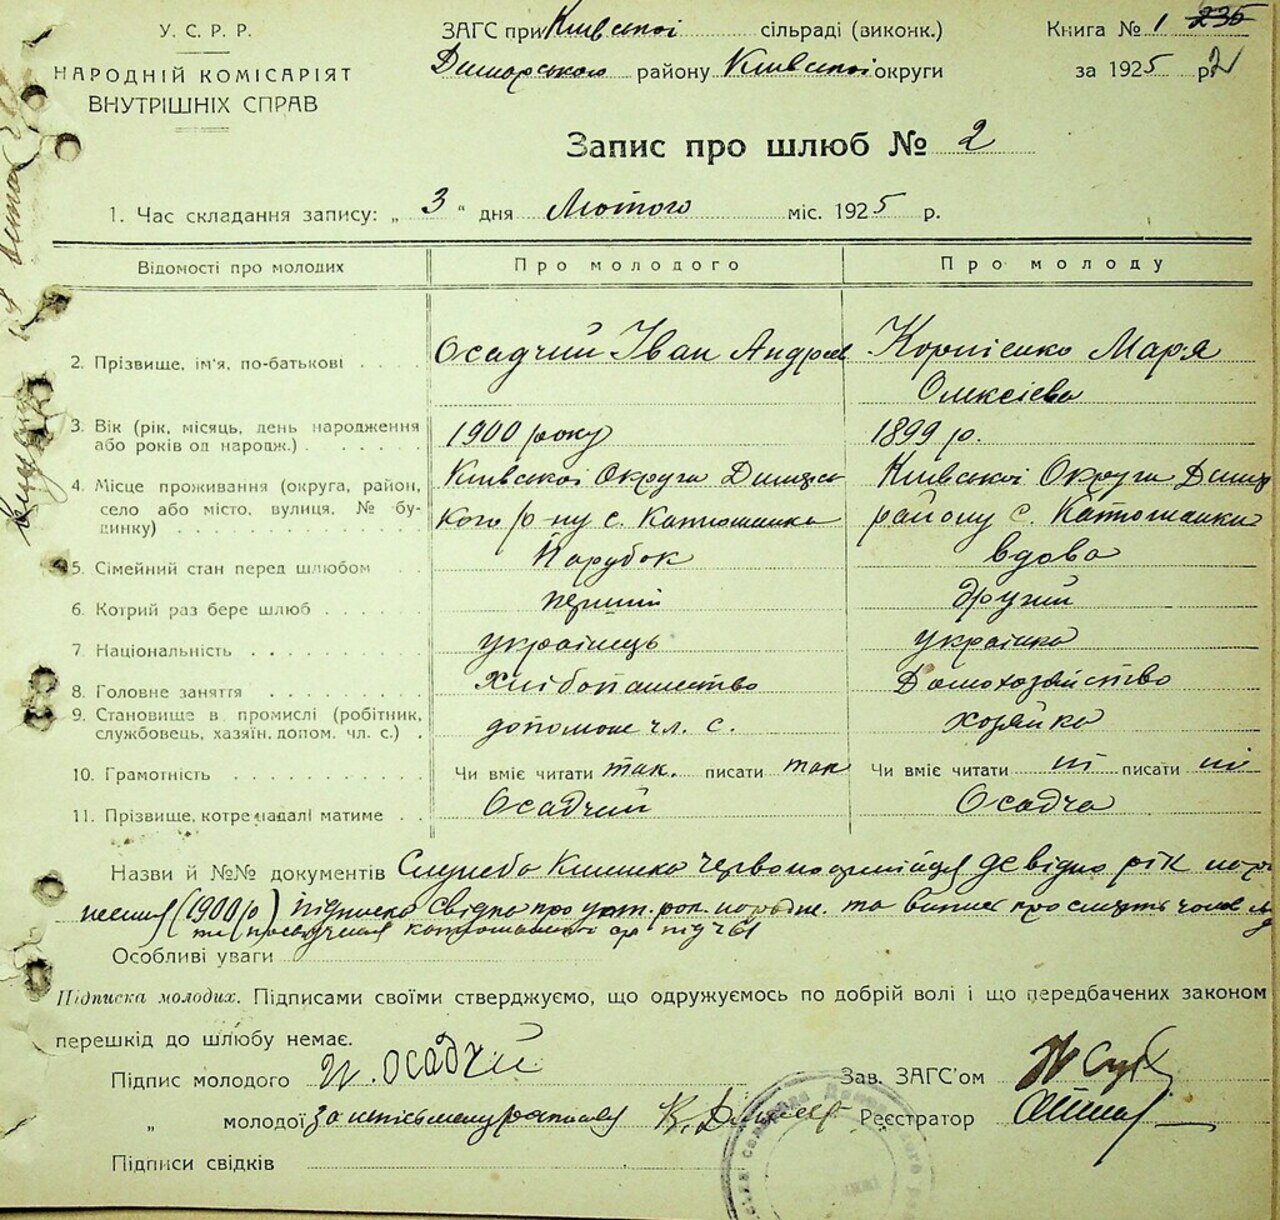 У. С. Р. Р.
НАРОДНІЙ КОМІСАРІЯТ
ВНУТРІШНІХ СПРАВ
ЗАГС при Київської сільраді (виконк.)
Димерського району Київської округи
Книга № 1 235
за 1925 р. 2
Запис про шлюб № 2
1. Час складання запису: „ 3 " дня Лютого міс. 1925 р.
Відомості про молодих Про молодого Про молоду
2. Прізвище, ім'я, по-батькові . . . . Осадчий Іван Андреев Корнієнко Мар'я
Олексієва
3. Вік (рік, місяць, день народження 1900 року 1899 р.
або років од народж.) . . . . . .
4. Місце проживання (округа, район, Київської Округа Димерсь Київської Округа Димер
село або місто, вулиця, № бу- кого р-ну с. Катюжанка району с. Катюжанки
динку) . . . . . . . . . . .
5. Сімейний стан перед шлюбом . . Парубок вдова
6. Котрий раз бере шлюб . . . . . перший другий
7. Національність . . . . . . . . українець українка
8. Головне заняття . . . . . . . хлібопашество Домохозяйство
9. Становище в промислі (робітник, допомож чл. с. хозяйка
службовець, хазяїн, допом. чл. с.) .
10. Грамотність . . . . . . . . . . Чи вміє читати так. писати так Чи вміє читати ні писати ні
11. Прізвище, котре надалі матиме . . Осадчий Осадча
Назви й №№ документів Служебна Книжка червоноармійця де видно рік наро
ження (1900 р) підписка про та випис про смерть
та посвідчення
Особливі уваги
Підписка молодих. Підписами своїми стверджуємо, що одружуємось по добрій волі і що передбачених законом
перешкід до шлюбу немає.
Підпис молодого И. Осадчий Зав. ЗАГС'ом
„ молодої За неписьменну росписався К. Реєстратор
Підписи свідків